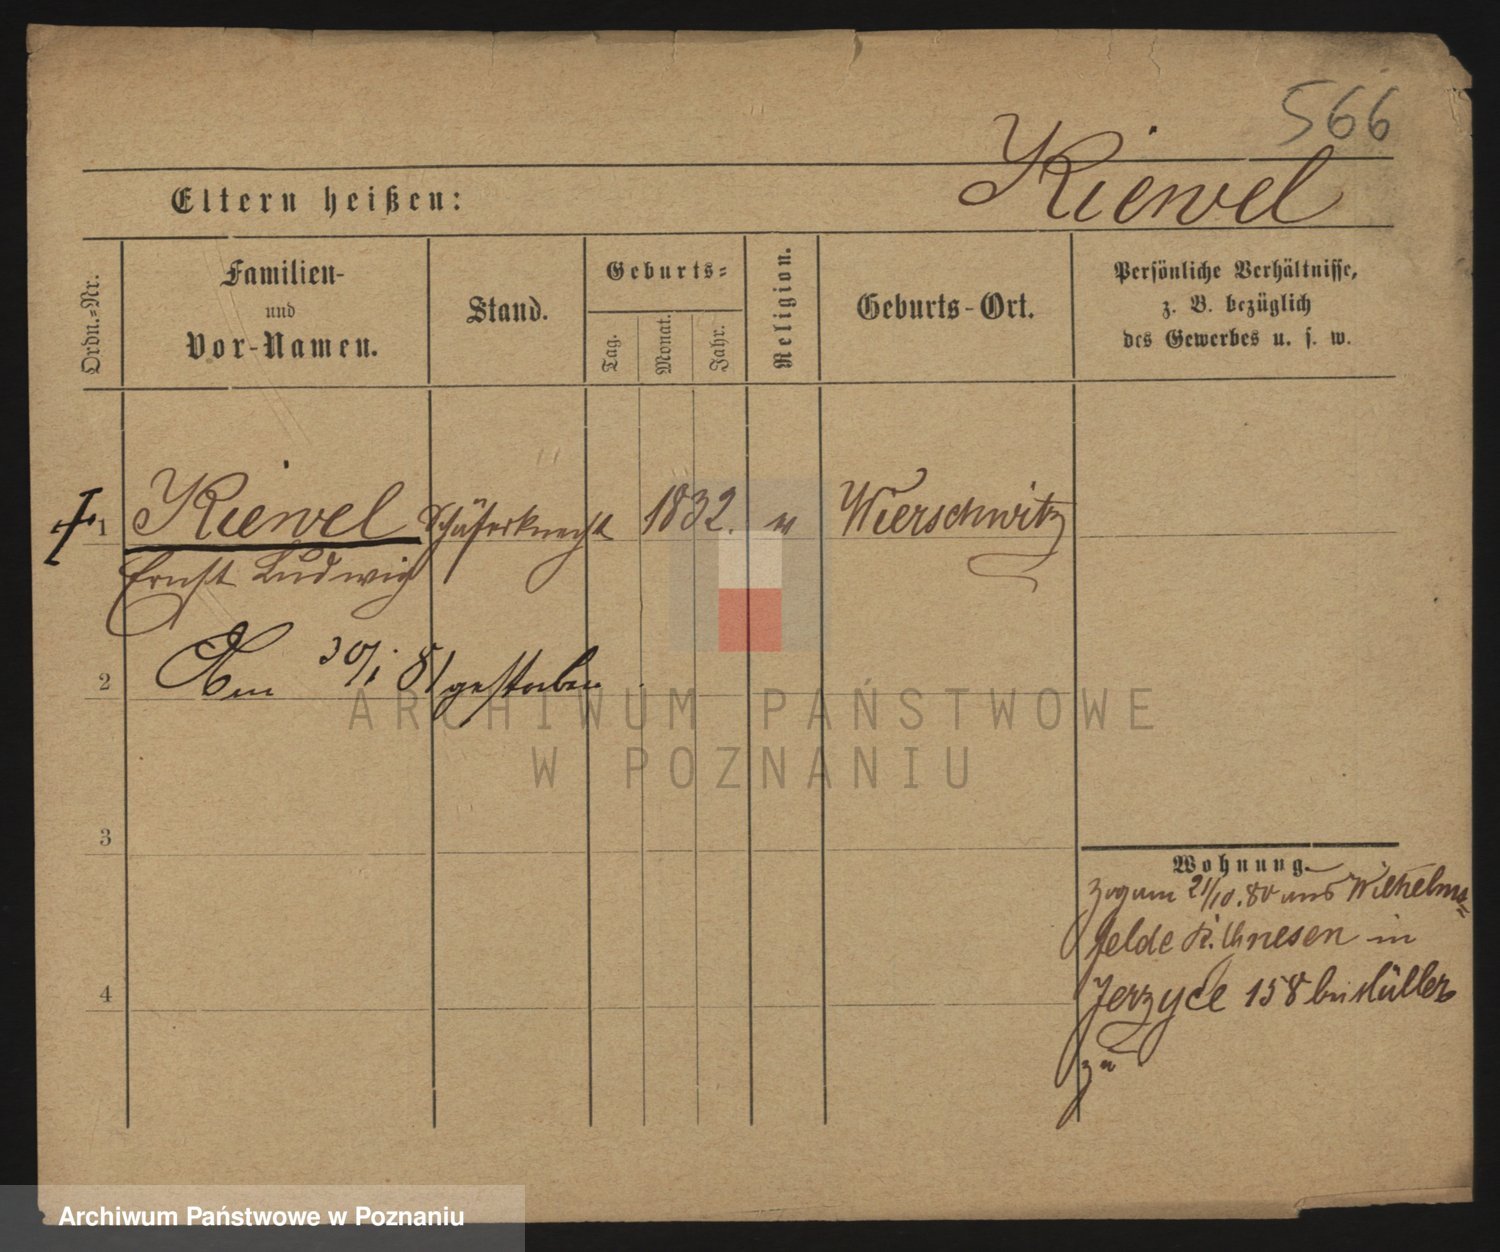 566
Kiewel
Eltern heißen:
Ordn.=Nr.
Familien-
und
Vor-Namen.
Stand.
Geburts=
Tag.
Monat.
Jahr.
Religion.
Geburts-Ort.
Persönliche Verhältnisse,
z. B. bezüglich
des Gewerbes u. s. w.
1 Kiewel Schäferknecht 1832. Wierschwitz
Ernst Ludwig
2 Am 30/1 81 gestorben
ARCHIWUM PAŃSTWOWE
W POZNANIU
3
Wohnung.
Zog am 21/10. 80 aus Wilhelms=
felde K. Gnesen in
4
Jerzyce 158 bei Müller
zu
Archiwum Państwowe w Poznaniu